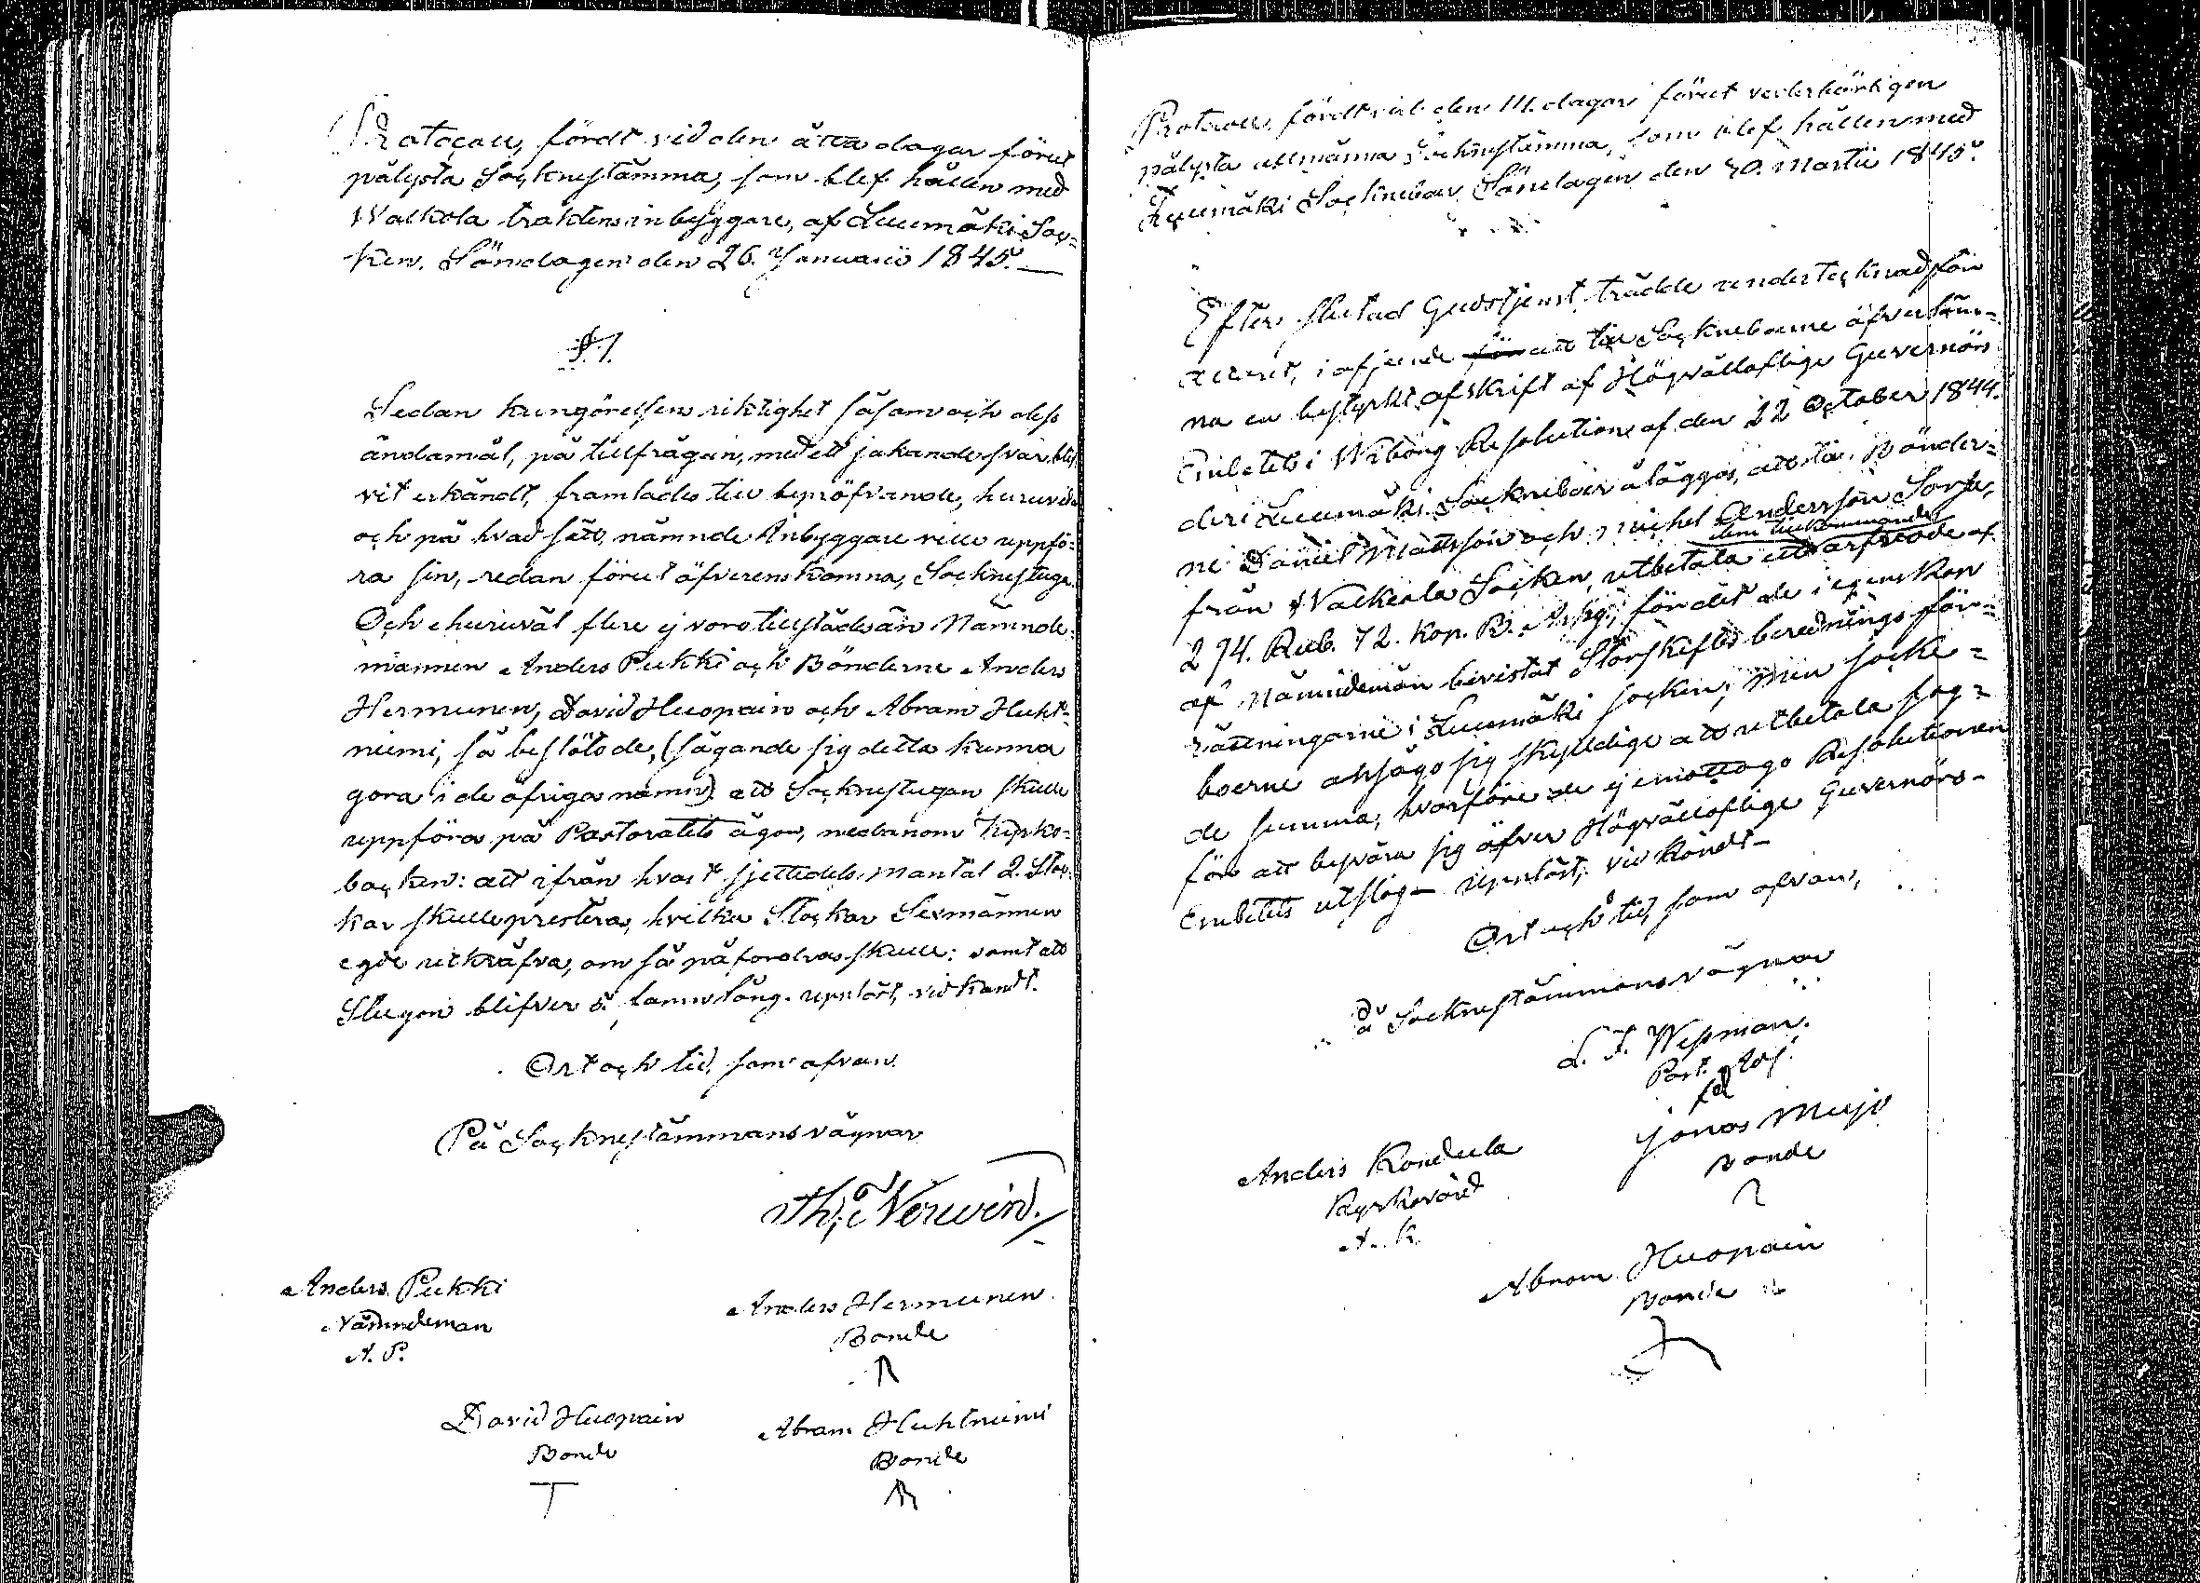 Protocoll, fördt vid den åtta dagar förut
pålysta Socknestämma, som blef hållen med
Walkola traktens inbyggare, af Luumäki Soc=
ken. Söndagen den 26. Januarii 1845.
§ 1.
Sedan kungörelsen riktighet såsom och dess
ändamål, på tillfrågan, med ett jakande svar blif
vit erkändt, framlades till bepröfvande, huruvida
och på hvad sätt, nämnde Inbyggare ville uppfö=
ra sin, redan förut öfverenskomna, Socknestuga.
Och ehuruväl flere ej voro tillstädes än Nämnde=
mannen Anders Pukki och Bönderne Anders
Hermunen, David Huopain och Abram Huht=
niemi, så beslöto de, (sägande sig detta kunna
göra i de öfrigas namn) att Socknestugan skulle
uppföras på Pastoratets ägor, nedanom
backen: att ifrån hvart sjettedels mantal 2. Stoc=
kar skulle prestera, hvilka Stockar Sexmännen
egde utkräfva, om så påfordras skulle; samt att
Stugan blifver famn lång. upplöst, vidkändt.
Ort och tid, som ofvan.
På Socknestämmans vägnar
Anders Pukki
Nämndeman
A. P.
Anders Hermunen
Bonde
David Huopain
Bonde
Abram Huhtniemi
Bonde
Protocoll, fördt vid den 14. dagar förut vederbörligen
pålysta allmänna Socknestämma, som blef hållen med
Luumäki Socknebor Söndagen den 30. Martii 1845.
Efter slutad Gudstjenst trädde undertecknad för
altaret, i afseende att till Socknebоerne öfverläm=
na en bestyrkt afskrift af Högvällofliga Guvernörs
Embetets i Wiborg Resolution af den 22 October 1844.
deri Luumäki Sockneboer åläggas, att till Bönder=
ne Daniel Mattsson och Michel Andersson Sorsa,
från Walkeala Socken, utbetala ett dem tillkommande arfvode af
294. Rub. 72. kop. B. Assig; för det de i egenskap
af Nämndemän bevistat Storskiftes berednings för=
rättningarne i Luumäki socken; men socke=
boerne ansågo sig skyldige att utbetala sag=
de summa, hvarföre de ej emottogo Resolutionen
för att besvära sig öfver Högvällofliga Guvernörs-
Embetets utslag - upplöst, vidkändt -
Ort och tid, som ofvan,
På Socknestämmans vägnar
L. F. Wepman.
Jonas Mujo
Bonde
Anders Kondula
Kyrkovärd
A. K.
Abram Huopain
Bonde